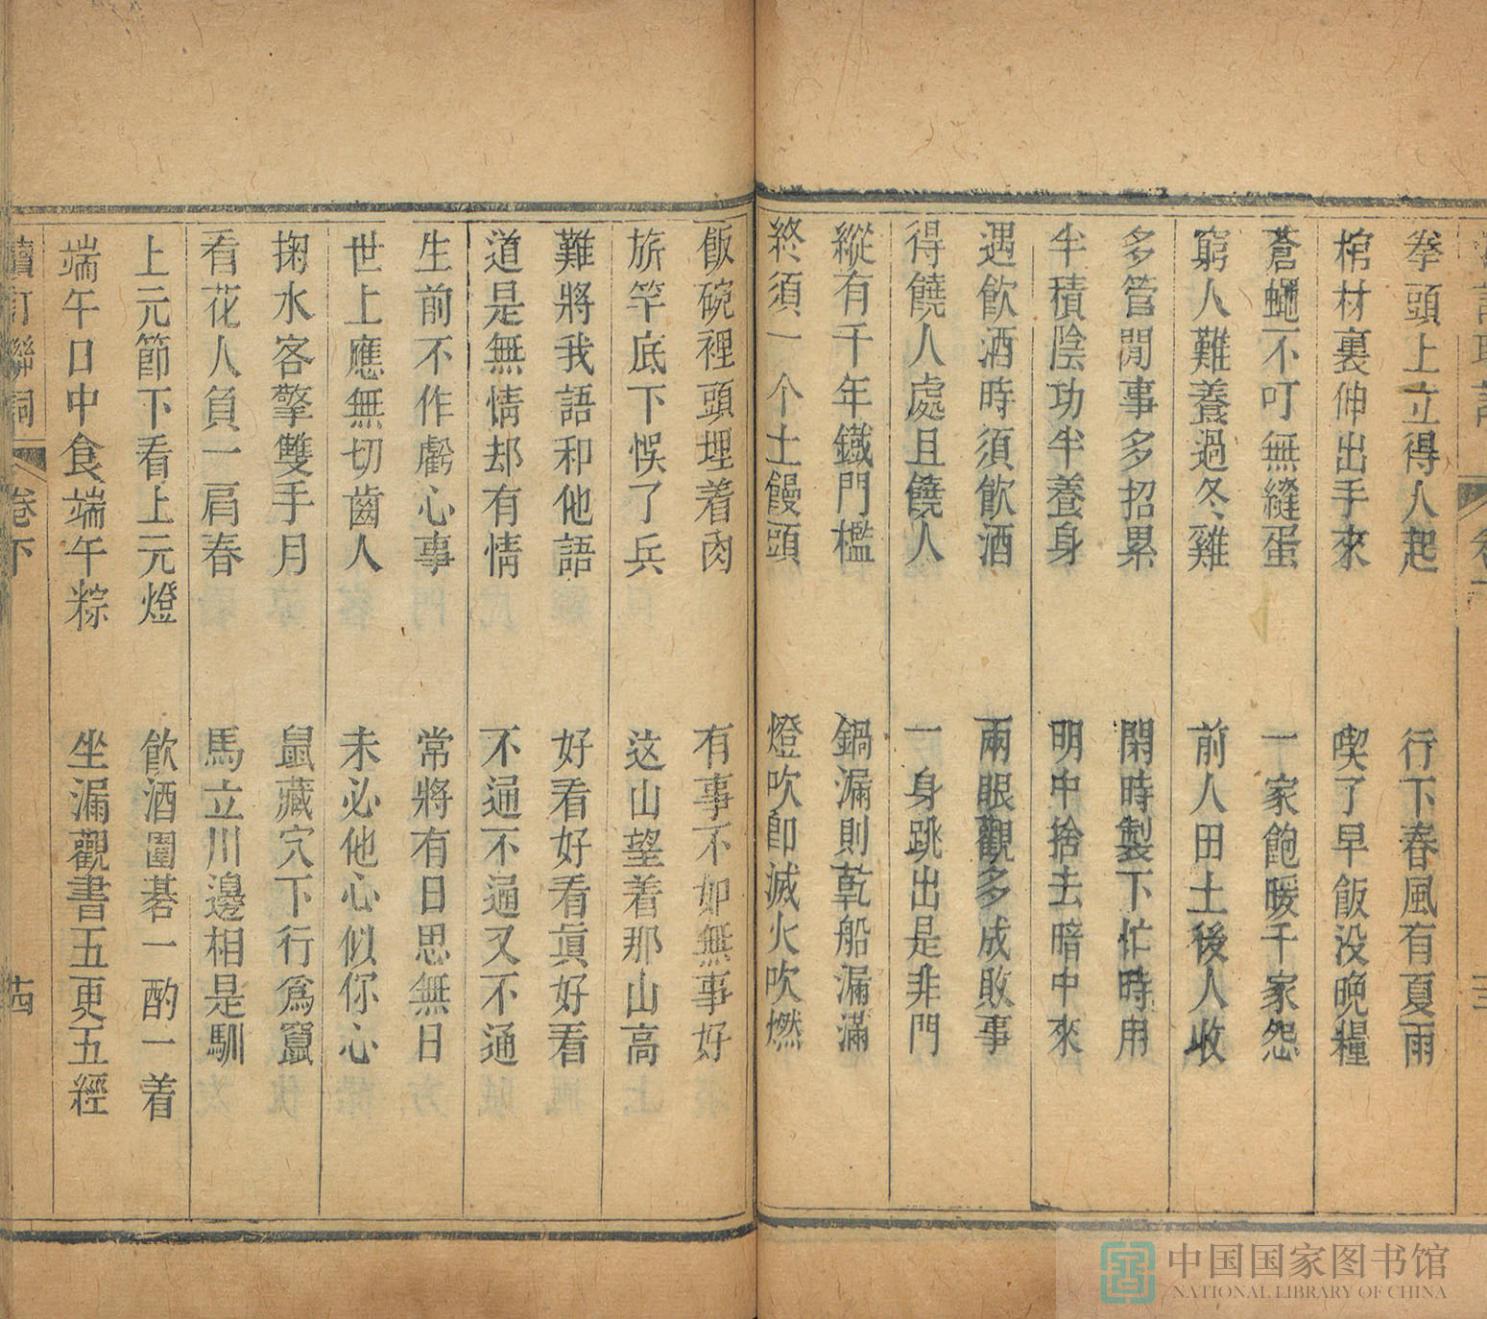 拳頭上立得人起　行下春風有夏雨
棺材裏伸出手來　喫了早飯没晚糧
蒼蠅不叮無縫蛋　一家飽暖千家怨
窮人難養過冬雞　前人田土後人收
多管閒事多招累　閑時製下忙時用
半積陰功半養身　明中捨去暗中來
遇飲酒時須飲酒　兩眼觀多成敗事
得饒人處且饒人　一身跳出是非門
縱有千年鐵門檻　鍋漏則乾船漏滿
終須一个土饅頭　燈吹卽滅火吹燃
飯碗裡頭埋着肉　有事不如無事好
旂竿底下悮了兵　这山望着那山高
難將我語和他語　好看好看眞好看
道是無情却有情　不通不通又不通
生前不作虧心事　常將有日思無日
世上應無切齒人　未必他心似你心
掬水客擎雙手月　鼠藏穴下行爲竄
看花人負一肩春　馬立川邊相是馴
上元節下看上元燈　飲酒圍碁一酌一着
端午日中食端午粽　坐漏觀書五更五經
續訂聯詞　卷下　十四
中国国家图书馆
NATIONAL LIBRARY OF CHINA